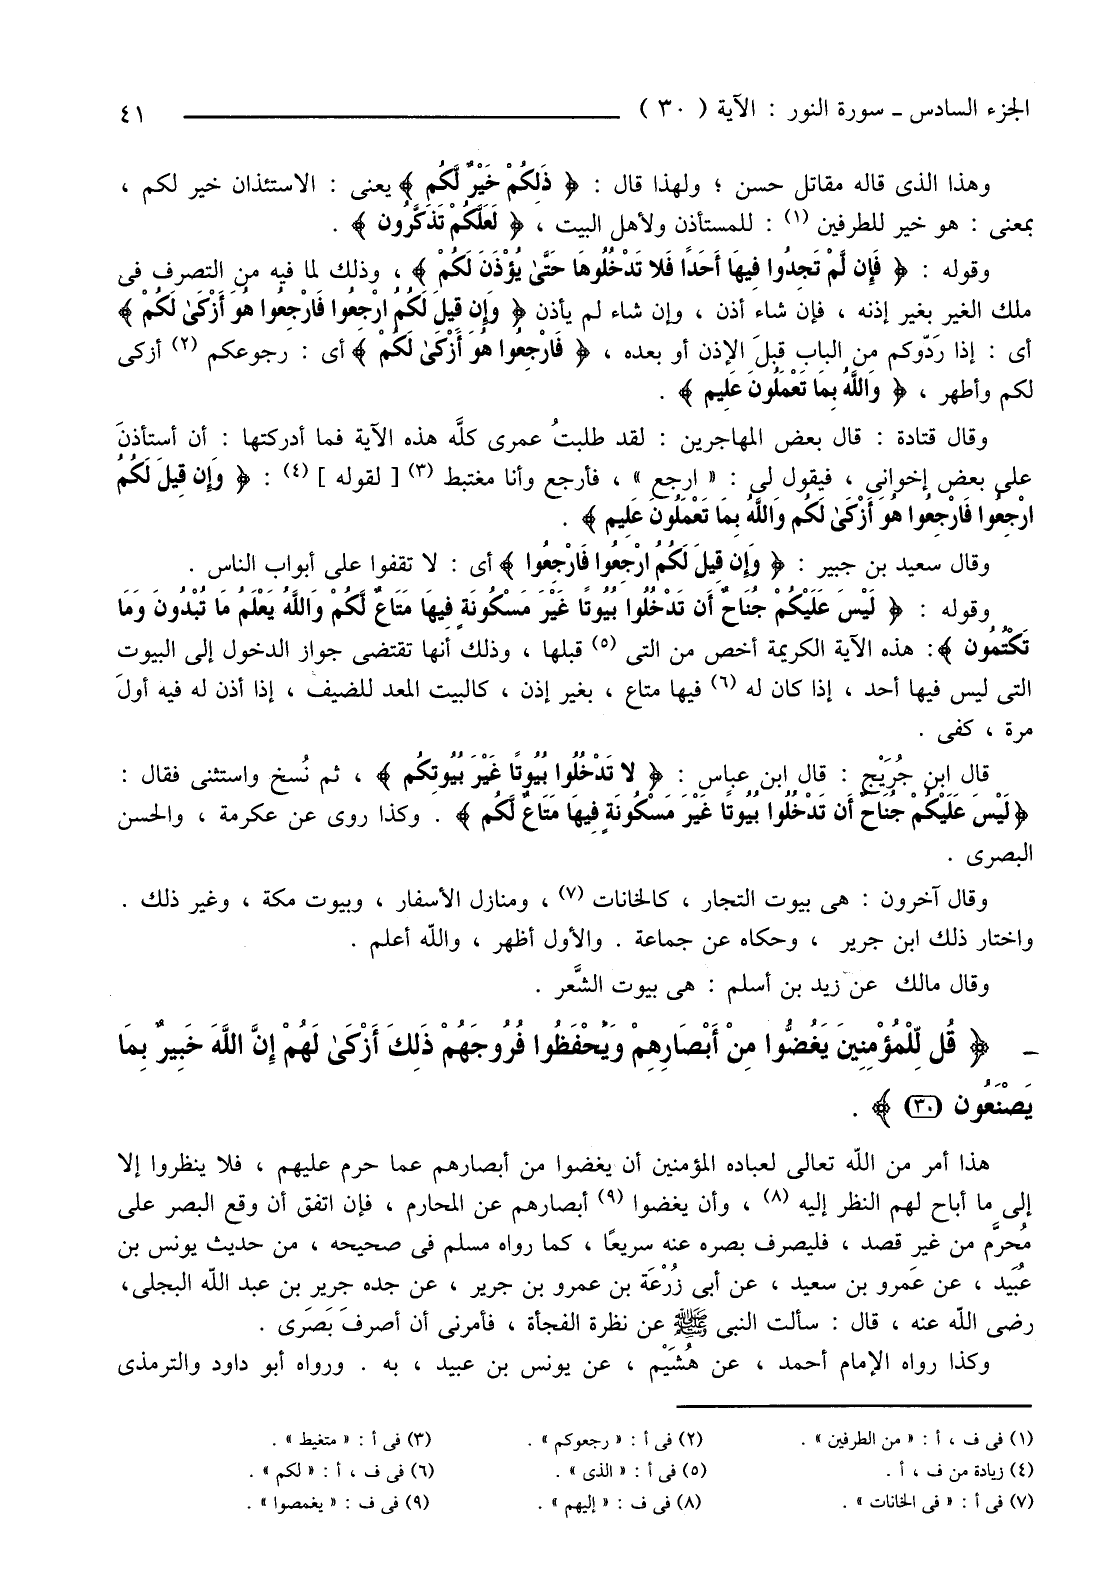 الجزء السادس ـ سورة النور : الآية ( ٣٠ ) ٤١
وهذا الذى قاله مقاتل حسن ؛ ولهذا قال : ﴿ ذَلِكُمْ خَيْرٌ لَّكُم ﴾ يعنى : الاستئذان خير لكم ،
بمعنى : هو خير للطرفين (١) : للمستأذن ولأهل البيت ، ﴿ لَعَلَّكُمْ تَذَكَّرُون ﴾ .
وقوله : ﴿ فَإِن لَّمْ تَجِدُوا فِيهَا أَحَدًا فَلا تَدْخُلُوهَا حَتَّىٰ يُؤْذَنَ لَكُمْ ﴾ ، وذلك لما فيه من التصرف فى
ملك الغير بغير إذنه ، فإن شاء أذن ، وإن شاء لم يأذن ﴿ وَإِن قِيلَ لَكُمُ ارْجِعُوا فَارْجِعُوا هُوَ أَزْكَىٰ لَكُمْ ﴾
أى : إذا رَدّوكم من الباب قبلَ الإذن أو بعده ، ﴿ فَارْجِعُوا هُوَ أَزْكَىٰ لَكُمْ ﴾ أى : رجوعكم (٢) أزكى
لكم وأطهر ، ﴿ وَاللَّهُ بِمَا تَعْمَلُونَ عَلِيم ﴾ .
وقال قتادة : قال بعض المهاجرين : لقد طلبتُ عمرى كلَّه هذه الآية فما أدركتها : أن أستأذنَ
على بعض إخوانى ، فيقول لى : « ارجع » ، فأرجع وأنا مغتبط (٣) [ لقوله ] (٤) : ﴿ وَإِن قِيلَ لَكُمُ
ارْجِعُوا فَارْجِعُوا هُوَ أَزْكَىٰ لَكُم وَاللَّهُ بِمَا تَعْمَلُونَ عَلِيم ﴾ .
وقال سعيد بن جبير : ﴿ وَإِن قِيلَ لَكُمُ ارْجِعُوا فَارْجِعُوا ﴾ أى : لا تقفوا على أبواب الناس .
وقوله : ﴿ لَيْسَ عَلَيْكُمْ جُنَاحٌ أَن تَدْخُلُوا بُيُوتًا غَيْرَ مَسْكُونَةٍ فِيهَا مَتَاعٌ لَّكُمْ وَاللَّهُ يَعْلَمُ مَا تُبْدُونَ وَمَا
تَكْتُمُون ﴾: هذه الآية الكريمة أخص من التى (٥) قبلها ، وذلك أنها تقتضى جواز الدخول إلى البيوت
التى ليس فيها أحد ، إذا كان له (٦) فيها متاع ، بغير إذن ، كالبيت المعد للضيف ، إذا أذن له فيه أولَ
مرة ، كفى .
قال ابن جُرَيْج : قال ابن عباس : ﴿ لا تَدْخُلُوا بُيُوتًا غَيْرَ بُيُوتِكُم ﴾ ، ثم نُسخ واستثنى فقال :
﴿لَيْسَ عَلَيْكُمْ جُنَاحٌ أَن تَدْخُلُوا بُيُوتًا غَيْرَ مَسْكُونَةٍ فِيهَا مَتَاعٌ لَّكُم ﴾ . وكذا روى عن عكرمة ، والحسن
البصرى .
وقال آخرون : هى بيوت التجار ، كالخانات (٧) ، ومنازل الأسفار ، وبيوت مكة ، وغير ذلك .
واختار ذلك ابن جرير ، وحكاه عن جماعة . والأول أظهر ، والله أعلم .
وقال مالك عن زيد بن أسلم : هى بيوت الشَّعر .
ـ ﴿ قُل لِّلْمُؤْمِنِينَ يَغُضُّوا مِنْ أَبْصَارِهِمْ وَيَحْفَظُوا فُرُوجَهُمْ ذَلِكَ أَزْكَىٰ لَهُمْ إِنَّ اللَّهَ خَبِيرٌ بِمَا
يَصْنَعُون (٣٠) ﴾ .
هذا أمر من الله تعالى لعباده المؤمنين أن يغضوا من أبصارهم عما حرم عليهم ، فلا ينظروا إلا
إلى ما أباح لهم النظر إليه (٨) ، وأن يغضوا (٩) أبصارهم عن المحارم ، فإن اتفق أن وقع البصر على
مُحرَّم من غير قصد ، فليصرف بصره عنه سريعًا ، كما رواه مسلم فى صحيحه ، من حديث يونس بن
عُبَيد ، عن عَمرو بن سعيد ، عن أبى زُرْعَة بن عمرو بن جرير ، عن جده جرير بن عبد الله البجلى،
رضى الله عنه ، قال : سألت النبى ﷺ عن نظرة الفجأة ، فأمرنى أن أصرفَ بَصَرى .
وكذا رواه الإمام أحمد ، عن هُشَيْم ، عن يونس بن عبيد ، به . ورواه أبو داود والترمذى
(١) فى ف ، أ : « من الطرفين » . (٢) فى أ : « رجعوكم » . (٣) فى أ : « متغيط » .
(٤) زيادة من ف ، أ . (٥) فى أ : « الذى » . (٦) فى ف ، أ : « لكم » .
(٧) فى أ : « فى الخانات » . (٨) فى ف : « إليهم » . (٩) فى ف : « يغمصوا » .